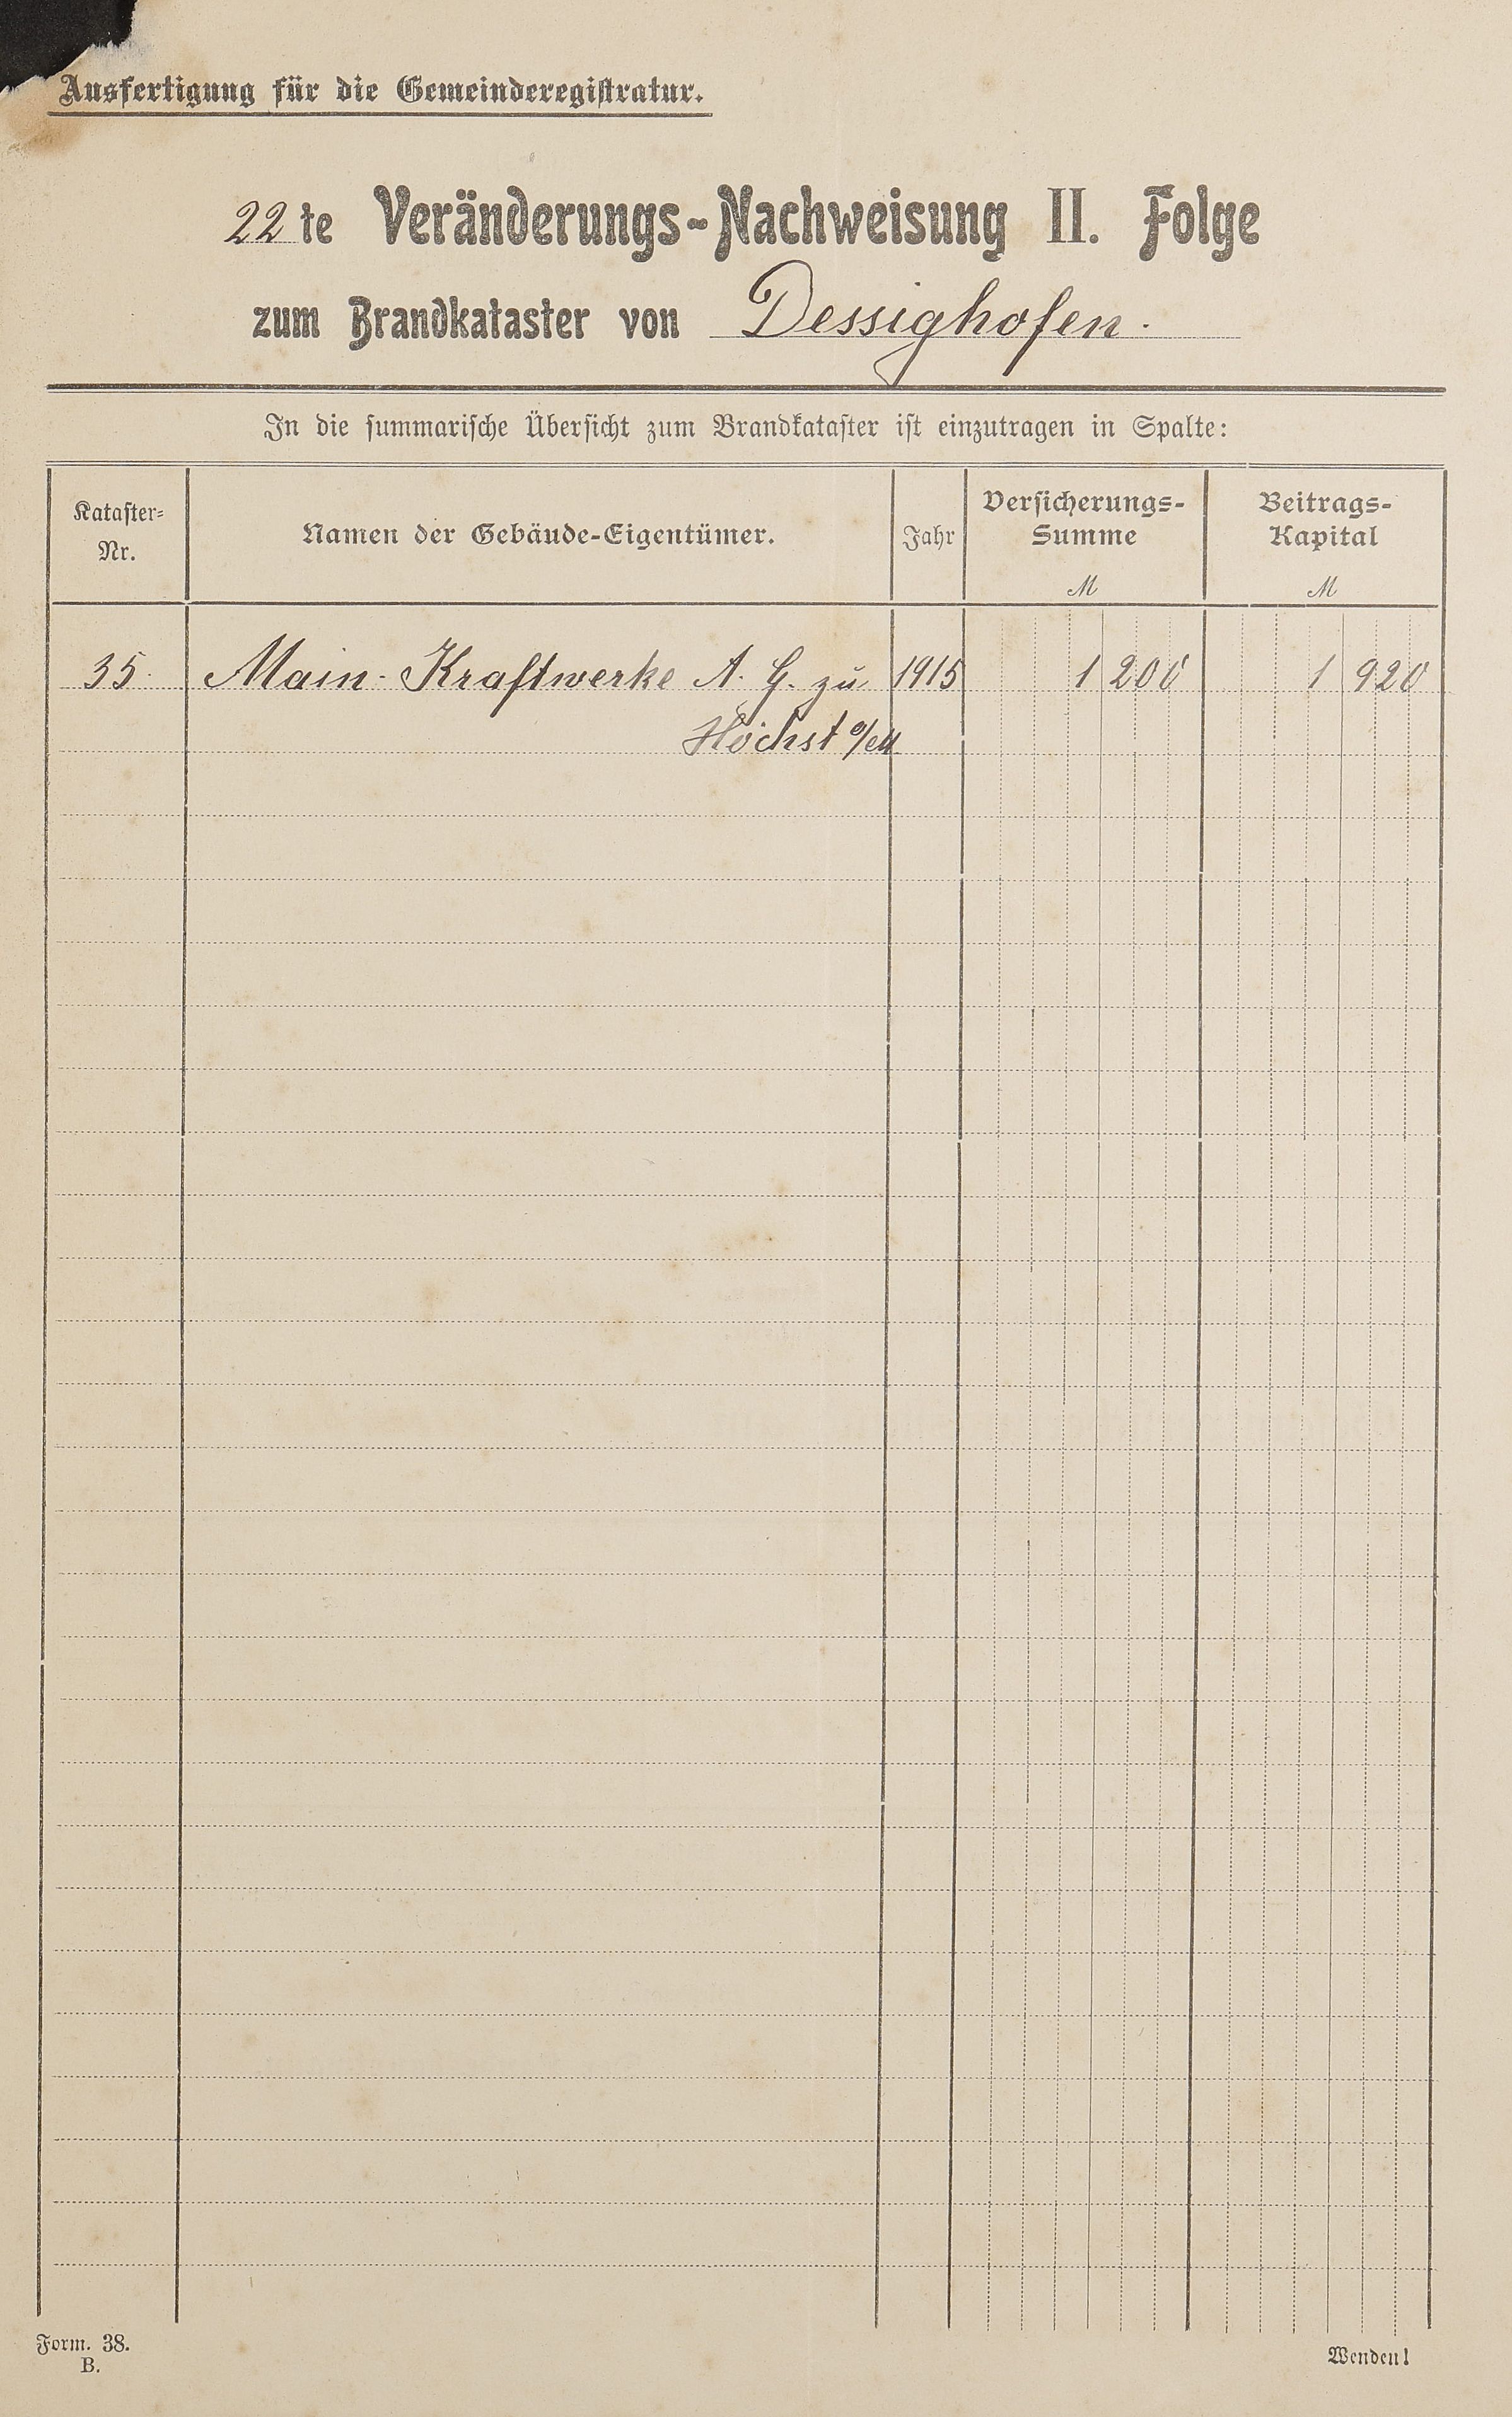 Ausfertigung für die Gemeinderegistratur.
22te Veränderungs-Nachweisung II. Folge
zum Brandkataster von Dessighofen.
In die summarische Übersicht zum Brandkataster ist einzutragen in Spalte:
Kataster-Nr. Namen der Gebäude-Eigentümer. Jahr Versicherungs-Summe M Beitrags-Kapital M
35. Main-Kraftwerke A. G. zu 1915 1 200 1 920
Höchst a/M
Form. 38.
B.
Wenden!